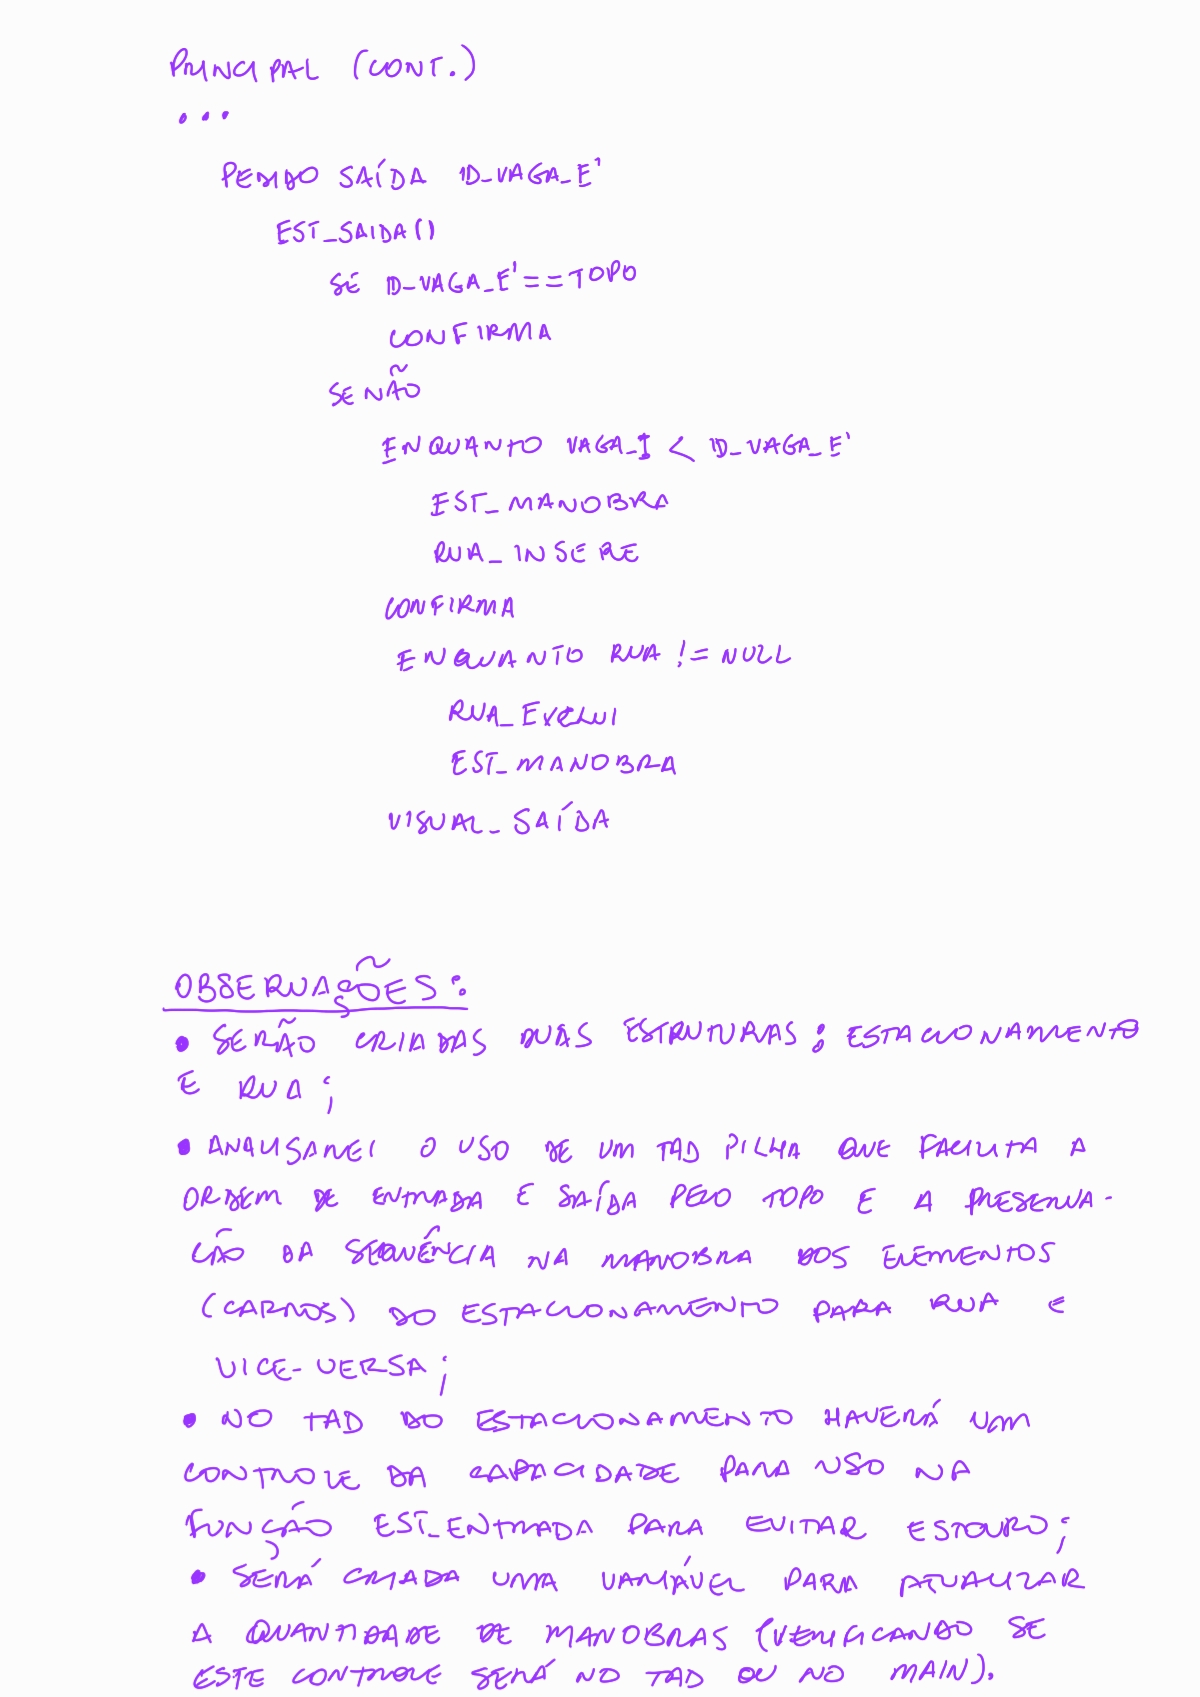 PRINCIPAL (CONT.)
...
PEDIDO SAÍDA ID_VAGA_E'
EST_SAIDA()
SE ID_VAGA_E' == TOPO
CONFIRMA
SENÃO
ENQUANTO VAGA_I < ID_VAGA_E'
EST_MANOBRA
RUA_INSERE
CONFIRMA
ENQUANTO RUA != NULL
RUA_EXCLUI
EST_MANOBRA
VISUAL_SAÍDA
OBSERVAÇÕES:
• SERÃO CRIADAS DUAS ESTRUTURAS: ESTACIONAMENTO
E RUA;
• ANALISAREI O USO DE UM TAD PILHA QUE FACILITA A
ORDEM DE ENTRADA E SAÍDA PELO TOPO E A PRESERVA-
ÇÃO DA SEQUÊNCIA NA MANOBRA DOS ELEMENTOS
(CARROS) DO ESTACIONAMENTO PARA RUA E
VICE-VERSA;
• NO TAD DO ESTACIONAMENTO HAVERÁ UM
CONTROLE DA CAPACIDADE PARA USO NA
FUNÇÃO EST_ENTRADA PARA EVITAR ESTOURO;
• SERÁ CRIADA UMA VARIÁVEL PARA ATUALIZAR
A QUANTIDADE DE MANOBRAS (VERIFICANDO SE
ESTE CONTROLE SERÁ NO TAD OU NO MAIN).